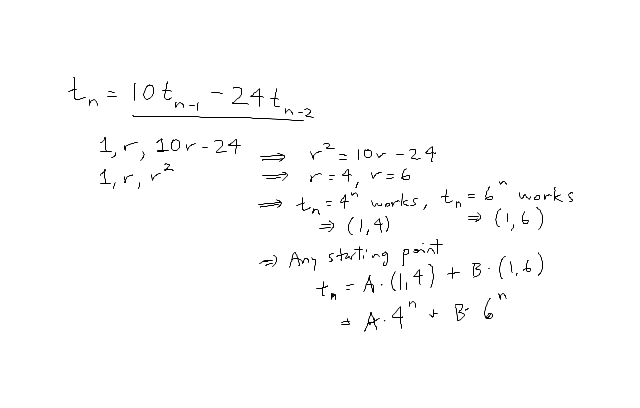 t_n = 10t_{n-1} - 24t_{n-2}
1, r, 10r - 24 ⇒ r² = 10r - 24
1, r, r² ⇒ r = 4, r = 6
⇒ t_n = 4^n works, t_n = 6^n works
⇒ (1, 4) ⇒ (1, 6)
⇒ Any starting point
t_n = A · (1, 4) + B · (1, 6)
= A · 4^n + B · 6^n